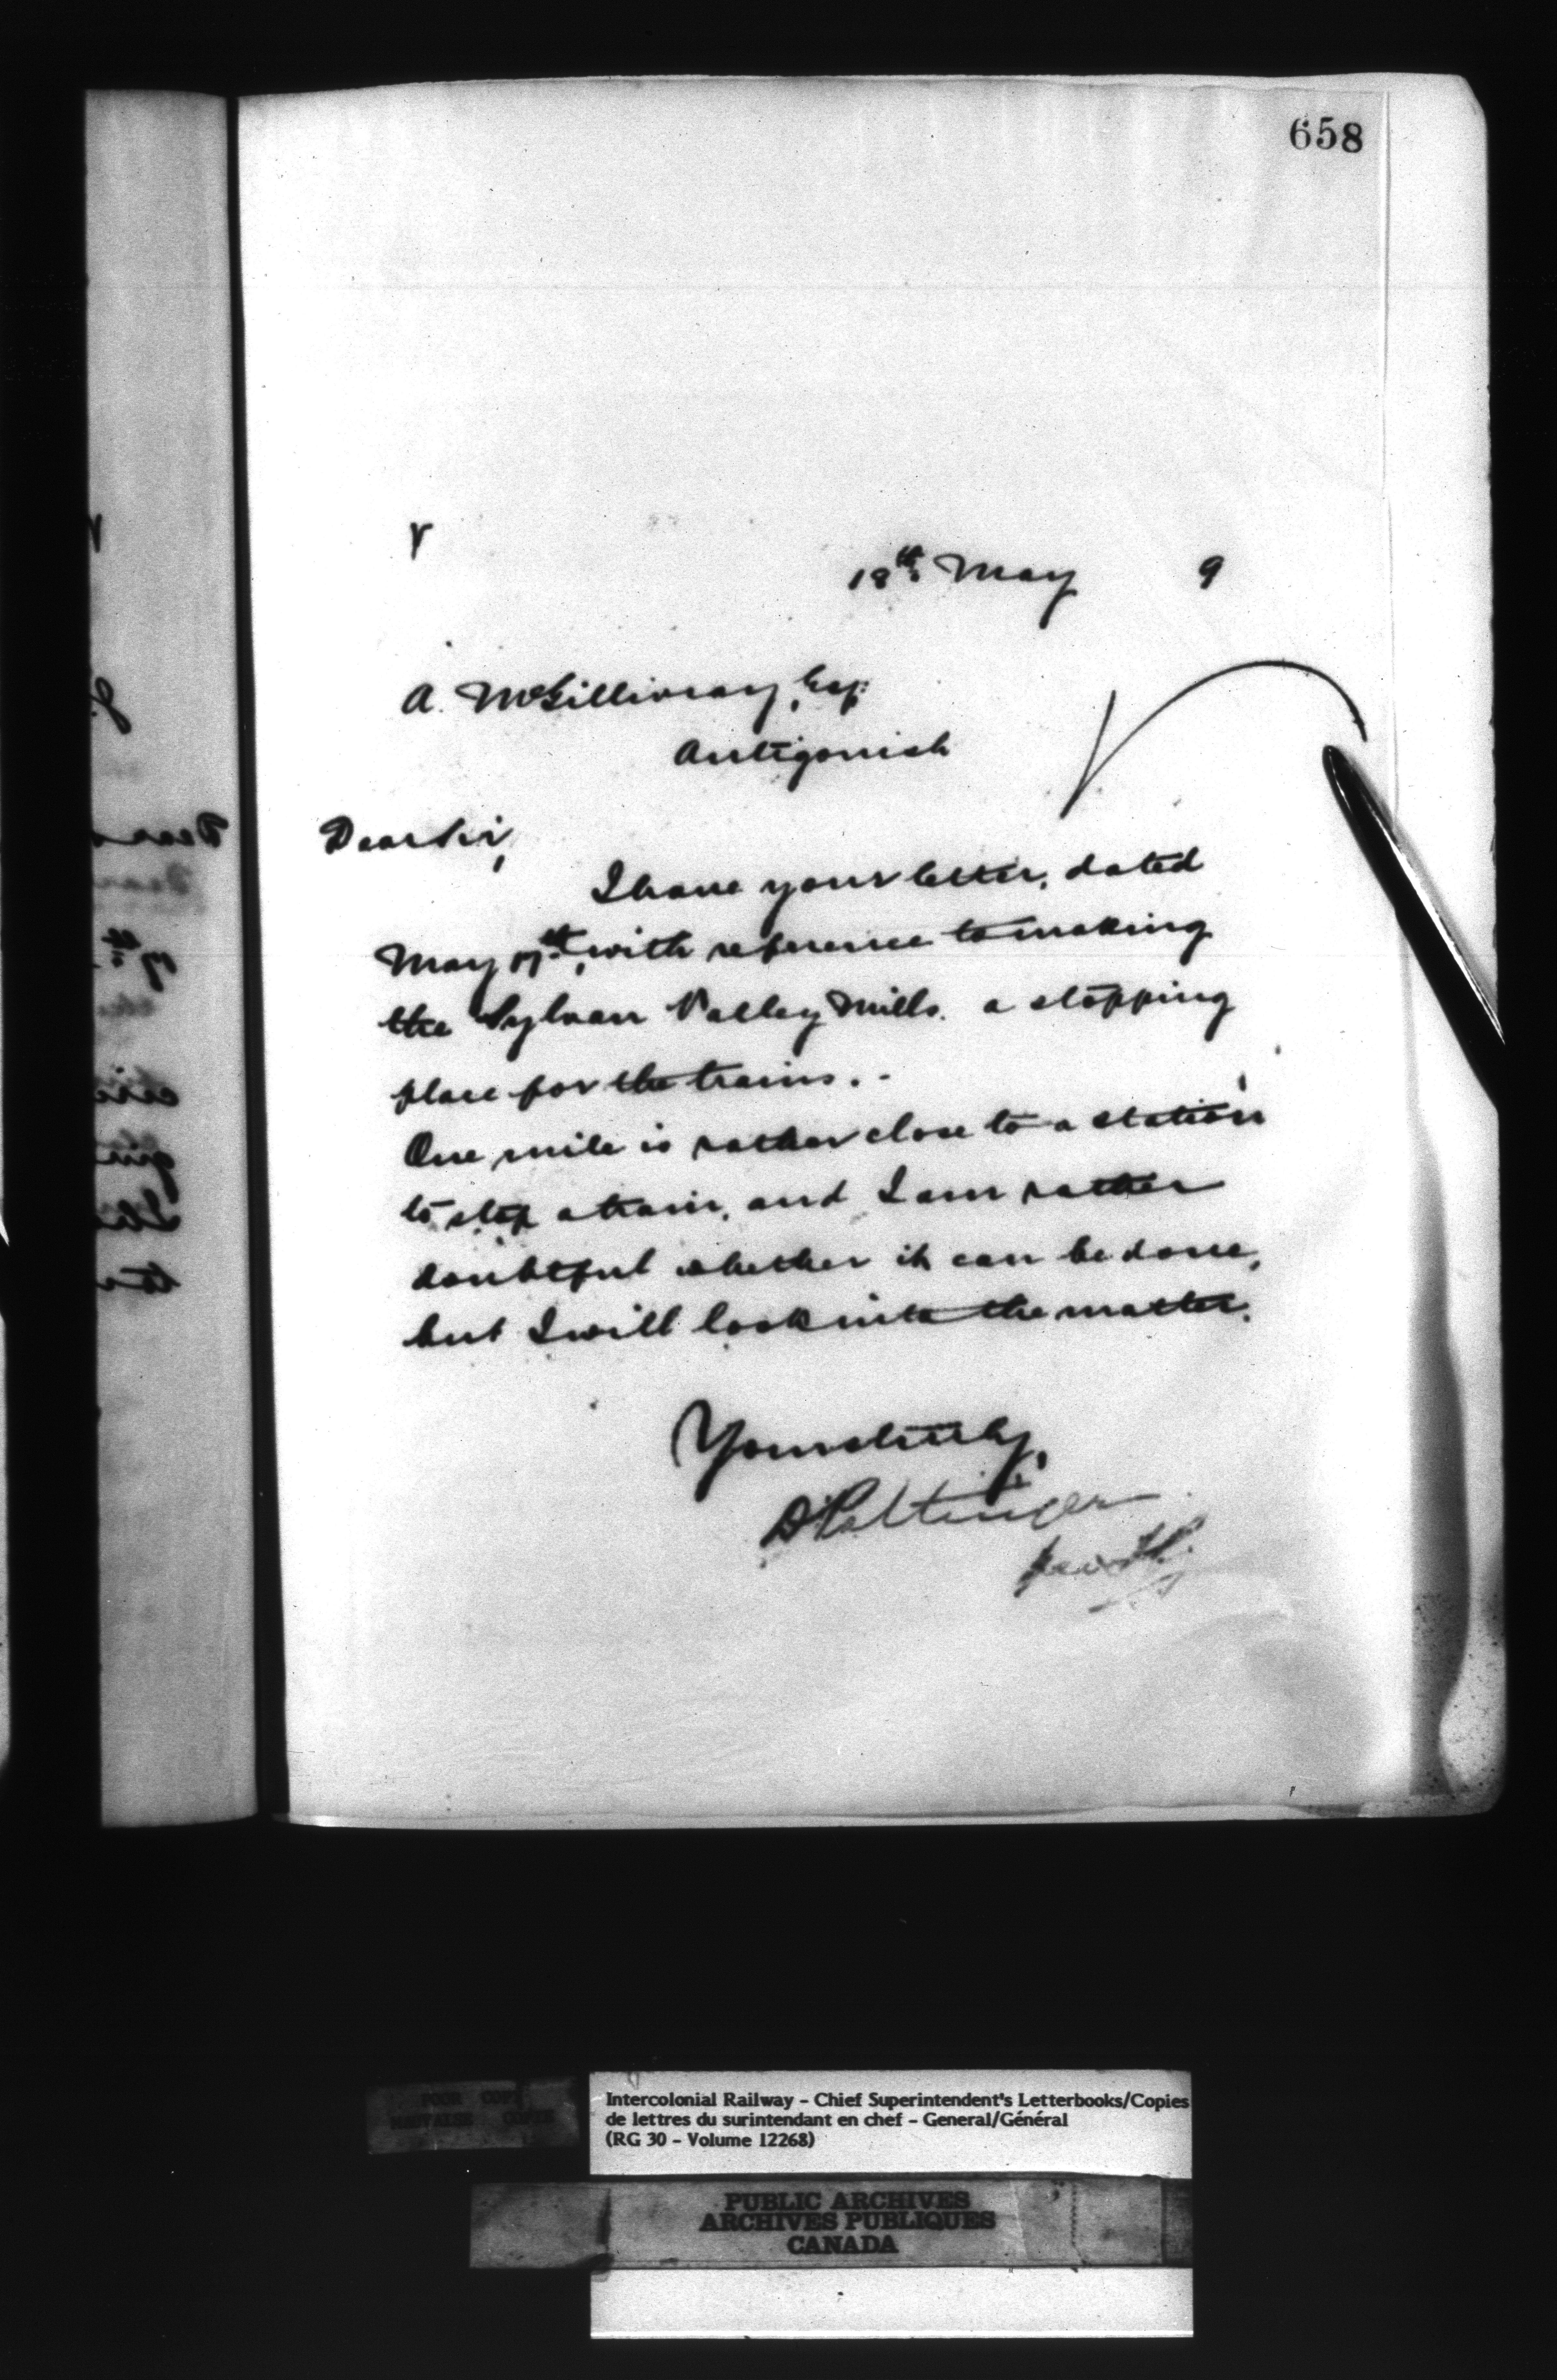 658
18th May 9
A. McGillivray, Esq.
Antigonish
Dear Sir,
I have your letter, dated
May 17th, with reference to making
the Sylvan Valley Mills. a stopping
place for the trains. -
One mile is rather close to a station
to stop a train, and I am rather
doubtful whether it can be done,
but I will look into the matter.
Yours truly,
D Pottinger
Intercolonial Railway – Chief Superintendent's Letterbooks/Copies
de lettres du surintendant en chef – General/Général
(RG 30 – Volume 12268)
PUBLIC ARCHIVES
ARCHIVES PUBLIQUES
CANADA